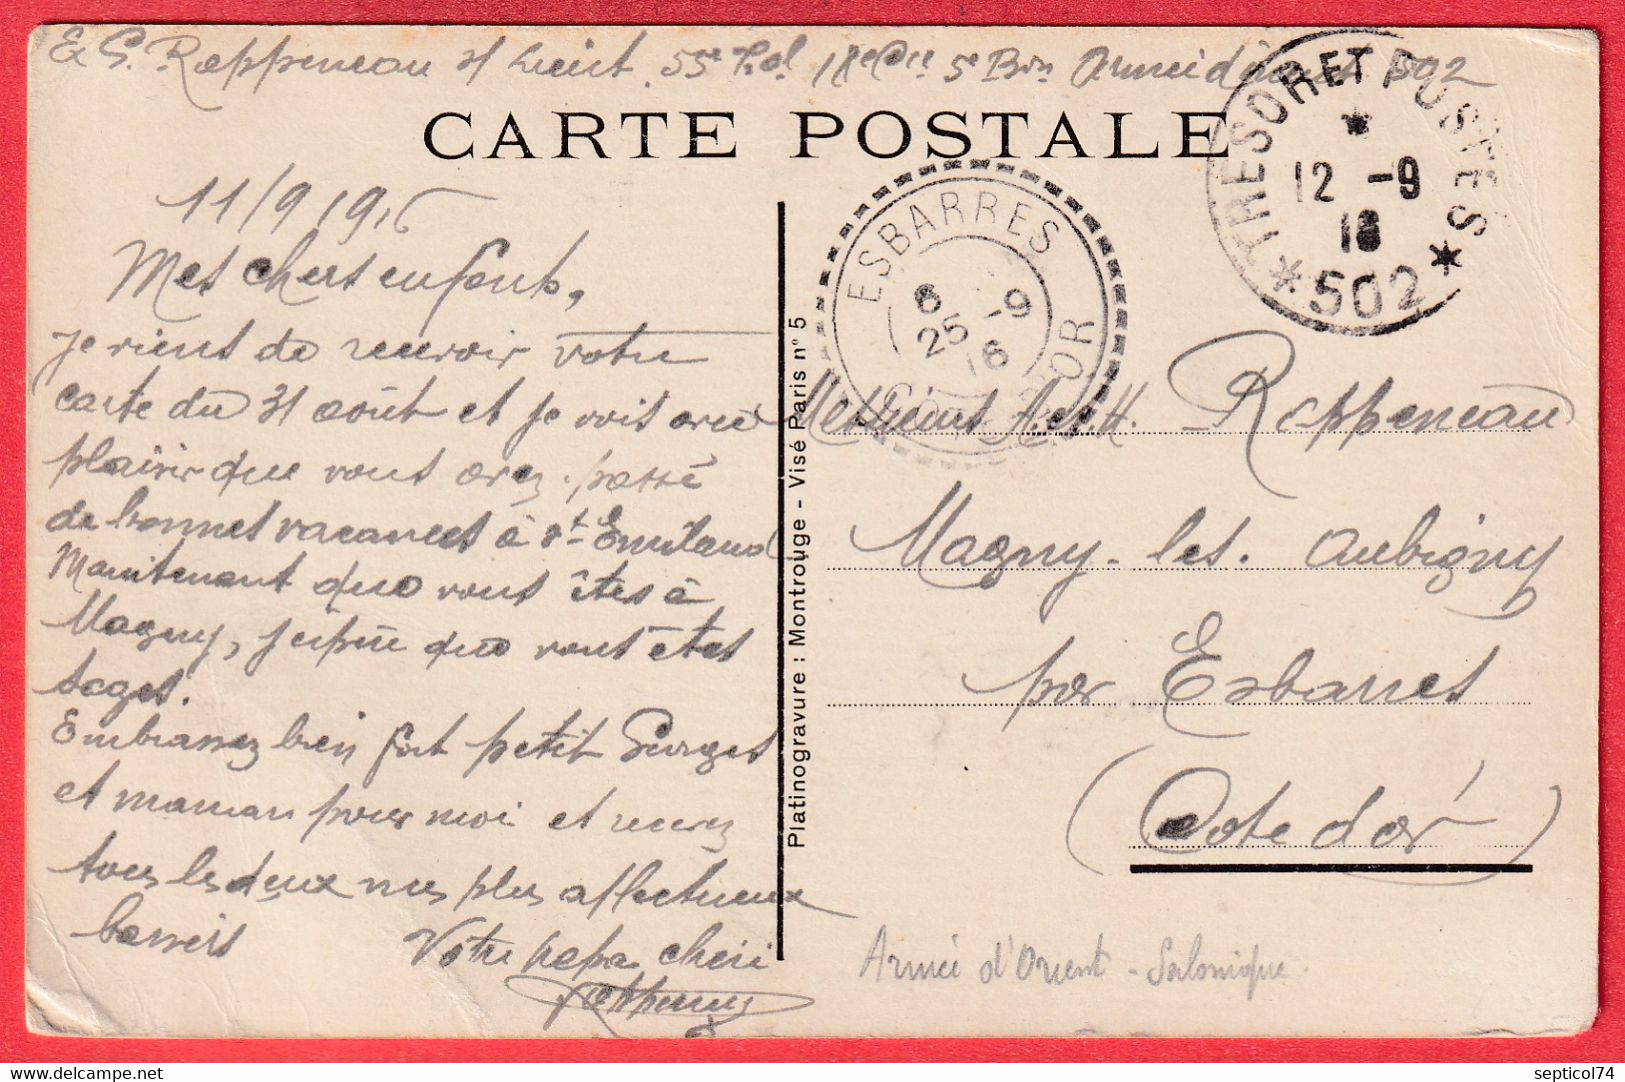 Ex G. Reppeneau Lieut. 55e Col 18e Cie 5e Bon Armée d'Orient 502
CARTE POSTALE
TRESOR ET POSTES
12 -9
16
* 502 *
ESBARRES
6
25 -9
16
D'OR
11/9 1916
Mes chers enfants,
Je viens de recevoir votre
carte du 31 août et je vois avec
plaisir que vous avez passé
de bonnes vacances à St Emiland
Maintenant que vous êtes à
Magny, j'espère que vous êtes
sages.
Embrassez bien fort petit Georges
et maman pour moi et recevez
tous les deux mes plus affectueux
baisers
Votre papa chéri
Reppeneau
Platinogravure : Montrouge - Visé Paris n° 5
Messieurs A. et H. Reppeneau
Magny-les-Aubigny
par Esbarres
(Côte d'or)
Armée d'Orient - Salonique.
septicol74